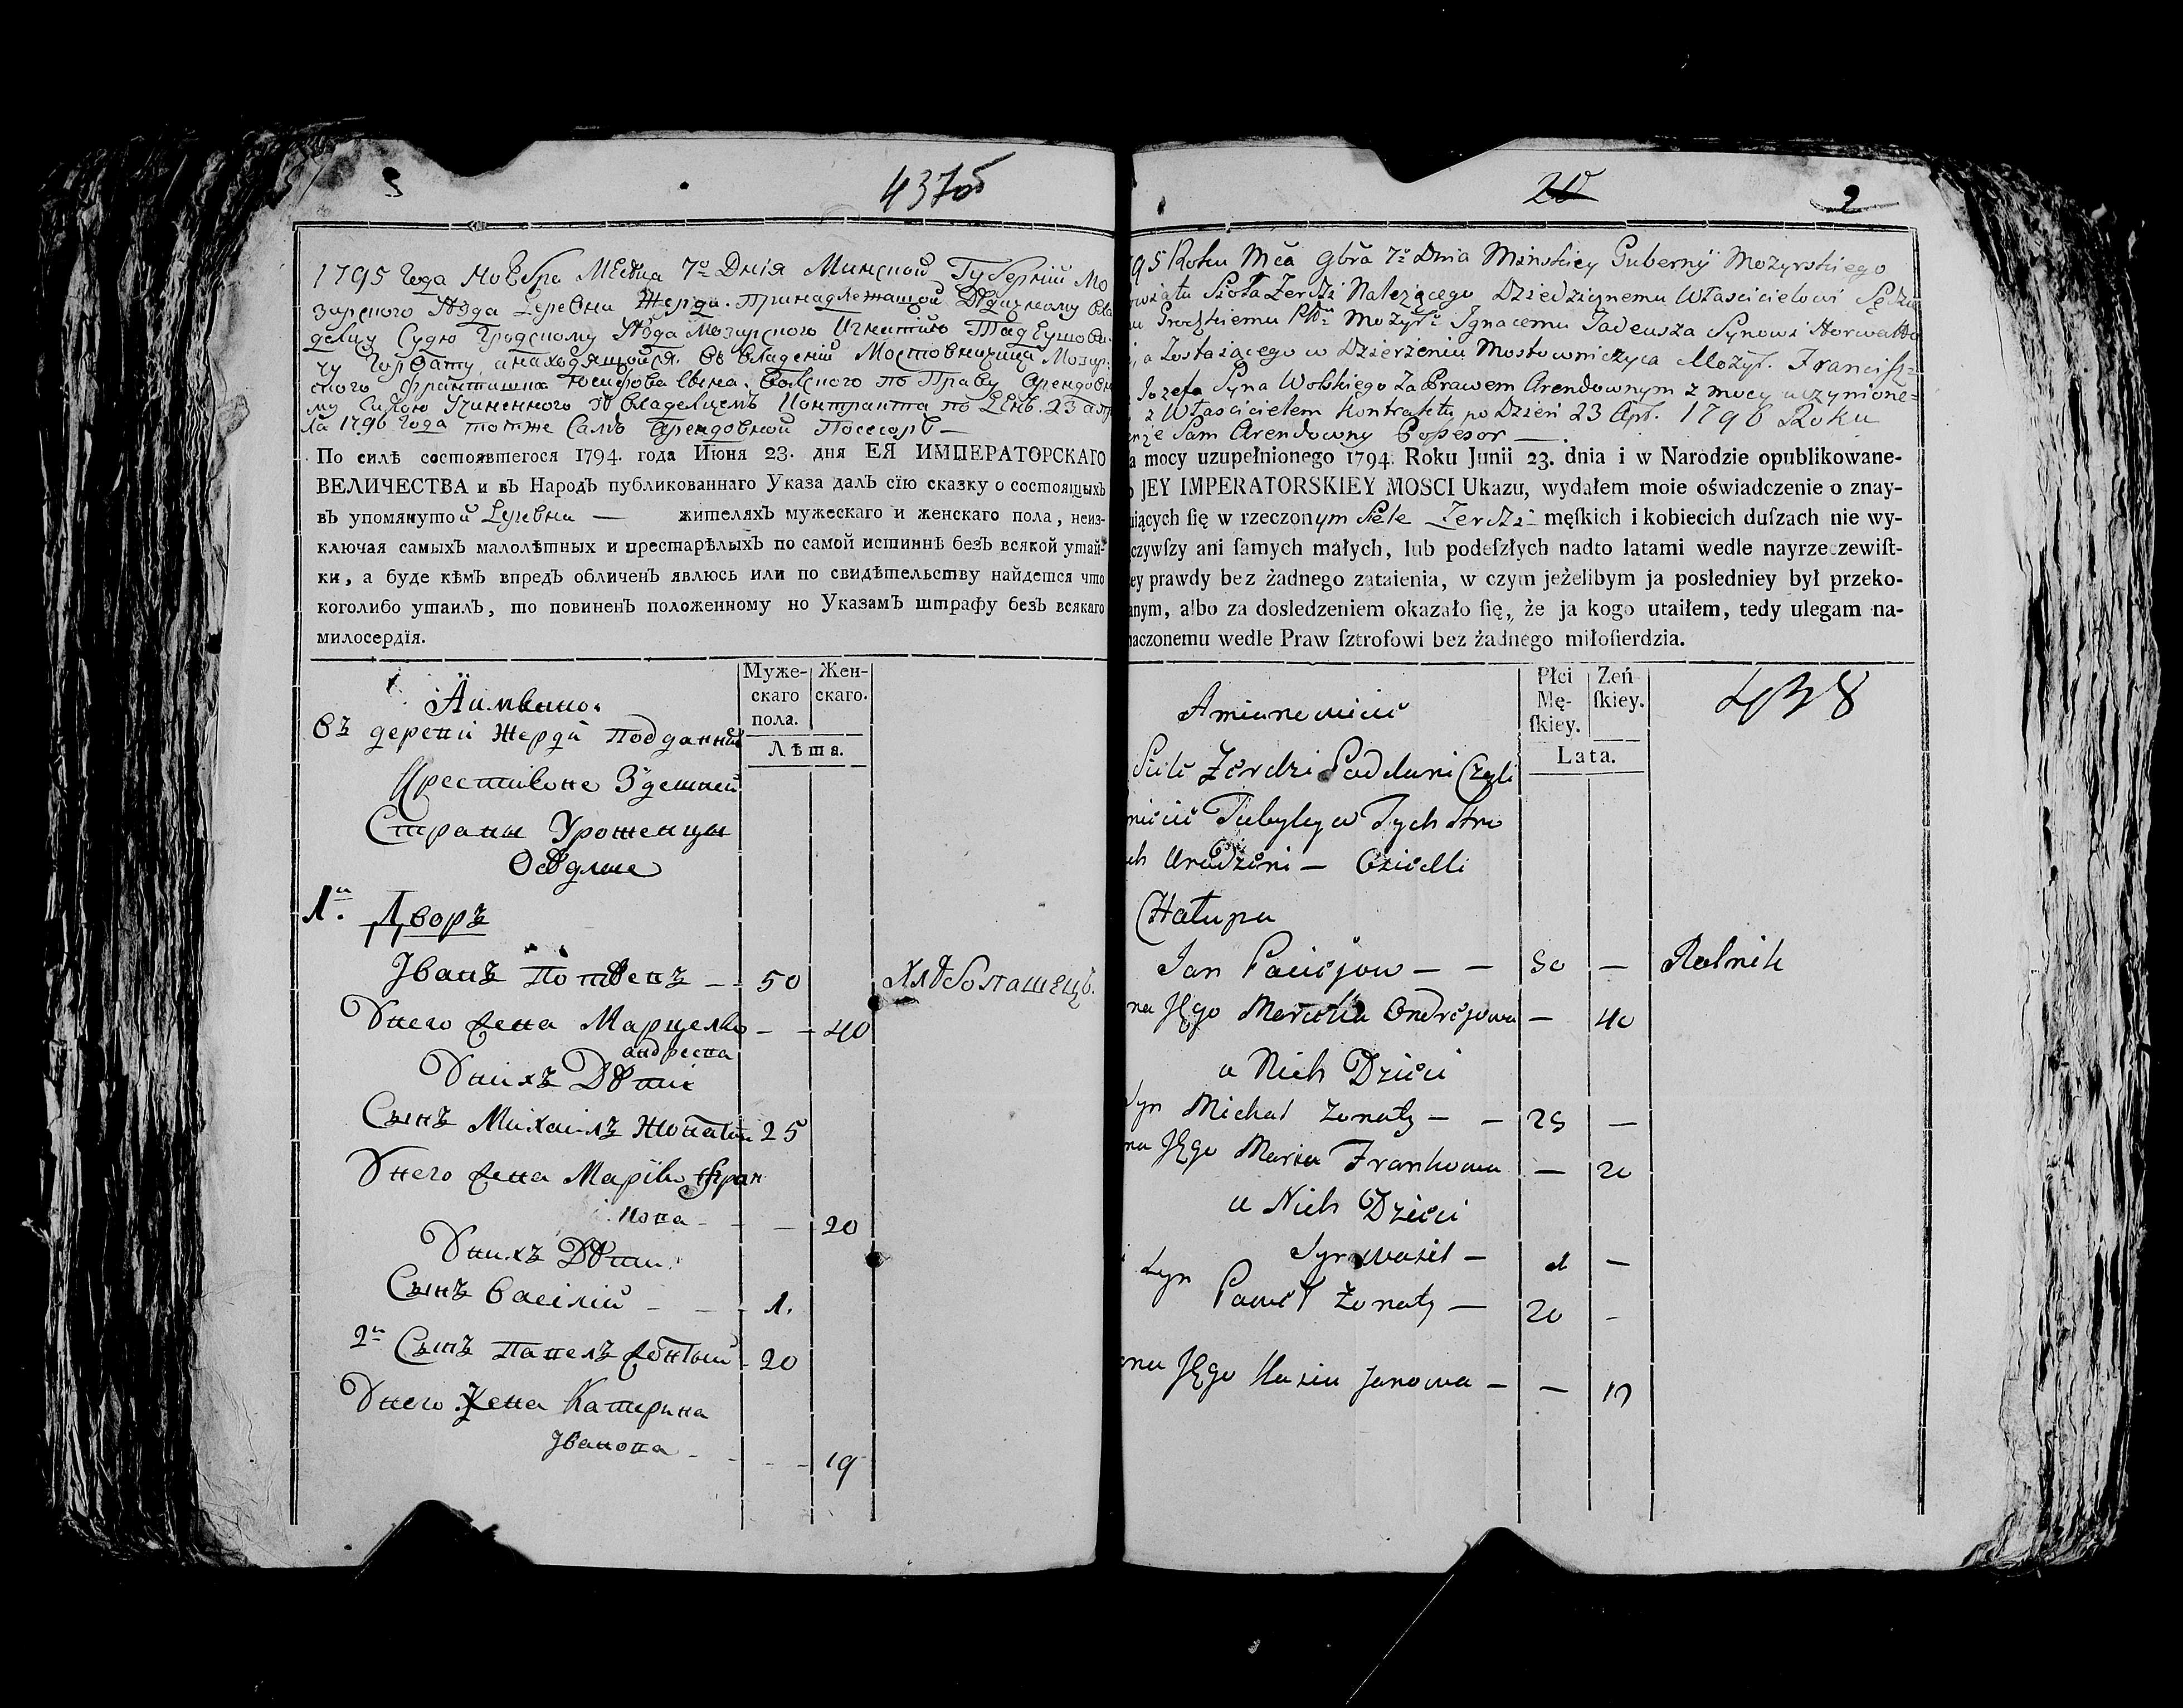 437об
1795 Года Ноебра Месеца 7º Днія Минской Губерній Мо
зирского Уезда Деревни Жерди. Принадлежащой Дедизному вла
делцу Судю Гродскому Уезда Мозирского Игнатию Тадеушови
чу Горвату, а находящойся. въ владеній Мостовничица Мозир
ского Францишка Юсифова Сына. Волского по Праву Арендовно
му Силою Учиненного з владелцемъ Контракта по День. 23 апре
ля 1796 года тотже Самъ Арендовной Посесоръ —
По силѣ состоявшегося 1794. года Июня 23. дня ЕЯ ИМПЕРАТОРСКАГО
ВЕЛИЧЕСТВА и въ Народъ публикованнаго Указа далъ сїю сказку о состоящихъ
въ упомянутой Деревни — жителяхъ мужескаго и женскаго пола, неиз-
ключая самыхъ малолѣтныхъ и престарѣлыхъ по самой истиннѣ безъ всякой утай-
ки, а буде кѣмъ впредъ обличенъ явлюсь или по свидѣтельству найдется что
коголибо утаилъ, то повиненъ положенному по Указамъ штрафу безъ всякаго
милосердїя.
Муже-
скаго
пола.
Жен-
скаго.
Лѣта.
Въ дерепни Жерди Подданий
Крестияне Здешней
Страны Уроженцы
Оседлые
1й. Дворъ
Іванъ — 50 Хлѣбопашецъ.
Унего жена Марцеля — — 40
андреева
Унихъ Дѣти
Сынъ Михаилъ Жонатый 25
Унего жена Марія Фран
кова — — 20
Унихъ Дѣти
Сынъ Василий — — 1.
2й Сынъ Павелъ Жонатый — 20
Унего Жена Катерина
Іванова — — — 19
2
95 Roku Mca 9bra 7º Dnia Minskiey Gubernÿ Mozyrskiego
owiatu Sioła Zerdzi Należącego Dziedzicznemu Włascicielowi Sędziu
Grodzkiemu Mozyr: Ignacemu Tadeusza Synowi Horwatto
, a Zostaiącego w Dzierżeniu Mostowniczyca Mozyr. Francisz=
Jozefa Syna Wolskiego Za Prawem Arendownym z mocy uczynione=
z Włascicielem Kontraktu po Dzień 23 Apr. 1796 Roku
Sam Arendowny Possesor —
a mocy uzupełnionego 1794. Roku Junii 23. dnia i w Narodzie opublikowane-
o JEY IMPERATORSKIEY MOSCI Ukazu, wydałem moie oświadczenie o znay-
uiących ſię w rzeczonym Siele Zerdzi męſkich i kobiecich duſzach nie wy-
czywſzy ani ſamych małych, lub podeſzłych nadto latami wedle nayrzeczewiſt-
ey prawdy bez żadnego zataienia, w czym jeżelibym ja posledniey był przeko-
anym, albo za dosledzeniem okazało ſię, że ja kogo utaiłem, tedy ulegam na-
naczonemu wedle Praw ſztrofowi bez żadnego miłoſierdzia.
Płci
Mę-
ſkiey.
Zeń
ſkiey.
Lata.
438
Siele Żerdzi Poddani Czyli
Tubylcy w Tych Stro
ch Urodzeni — Osiedli
Chałupa
Jan — — 50 — Rolnik
na Jego Maruta Ondrejowa — 40
u Nich Dzieci
Syn Michał Żonaty — — 25 —
na Jego Maria Frankowa — 20
u Nich Dzieci
Syn Wasil — 1 —
Syn Paweł Żonaty — 20 -
ona Jego Kasia Janowa — — 19